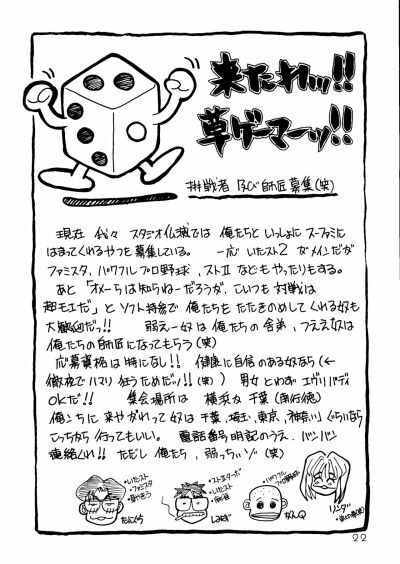 来たれッ!!
草ゲーマーッ!!
挑戦者及び師匠募集(笑)
現在 我々 スタジオ仏滅では 俺たちといっしょに スーファミに
はまってくれるやつを募集している。 一応 いたスト2 がメインだが
ファミスタ、パワフルプロ野球、ストⅡ などもやったりもする。
あと「オメーらは知らねーだろうが、こいつも対戦は
超モエだ」と ソフト持参で 俺たちを たたきのめしてくれる奴も
大歓迎だっ!! 弱えー奴は俺たちの舎弟、つええ奴は
俺たちの師匠になってもらう(笑)
応募資格は特になし!! 健康に自信のある奴なら(←
徹夜でハマリ狂うためだッ!!(笑)) 男女とわず エヴリバディ
OKだ!! 集会場所は 横浜か千葉(南行徳)
俺んちに来やがれって奴は 千葉、埼玉、東京、神奈川ぐらいなら
こっちから行ってもいい。 電話番号明記のうえ、バンバン
連絡くれ!! ただし俺たち、弱っちいゾ(笑)
・いたスト
・ファミスタ
たにぐち
・いたスト
しみず
・パワフル
かんQ
リンダ
22